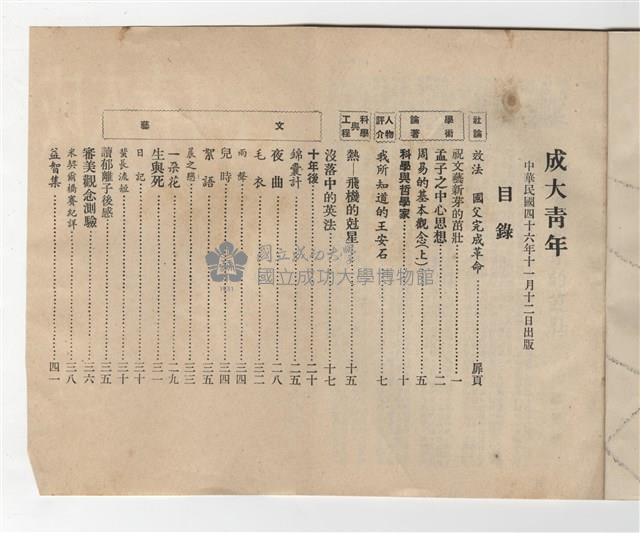 成大青年
中華民國四十六年十一月十二日出版
目錄
社論
效法 國父完成革命……扉頁
學術論著
祝文藝新芽的茁壯……一
孟子之中心思想……二
周易的基本觀念(上)……五
科學與哲學家……十
人物評介
我所知道的王安石……七
科學與工程
熱—飛機的尅星……十五
沒落中的英法……十七
文藝
十年後……二十
錦囊計……二五
夜曲……二八
毛衣……三二
雨聲……三四
兒時……三四
絮語……三五
晨之戀……三三
一朵花……二九
生與死……三一
日記……三十
蜚長流短……三十
讀郁離子後感……三五
審美觀念測驗……三六
米契爾橋賽紀詳……三八
益智集……四一
國立成功大學
國立成功大學博物館
1931